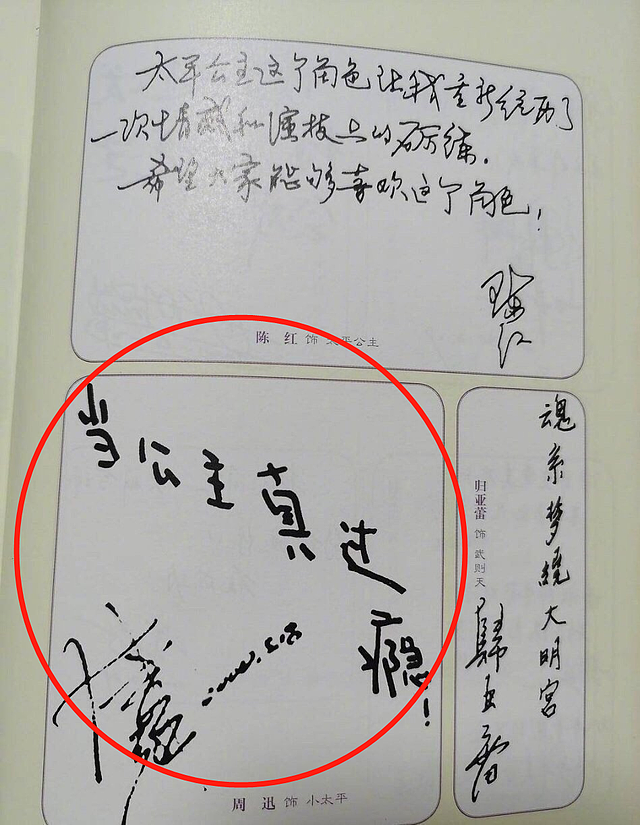 太平公主这个角色让我重新经历了
一次情感和演技上的砺练.
希望大家能够喜欢这个角色!
陈红
陈 红 饰 太平公主
当公主真过瘾!
周 迅 饰 小太平
魂系梦绕大明宫
归亚蕾 饰 武则天
歸亚蕾